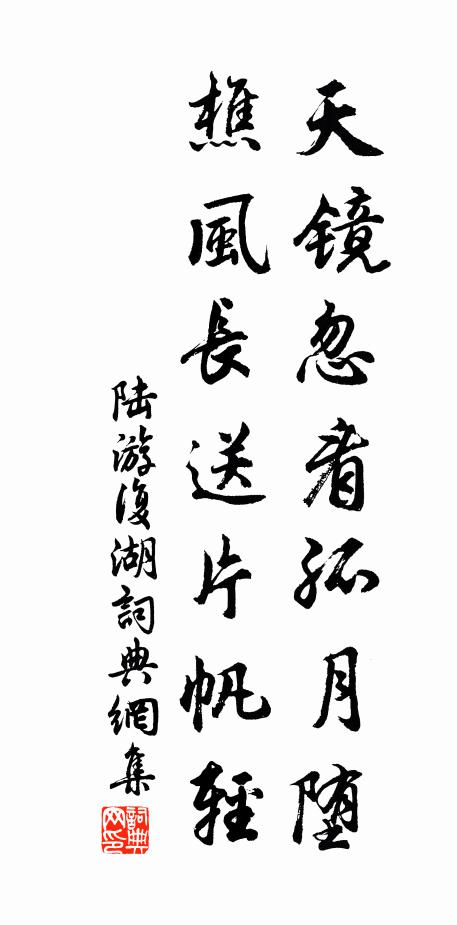 天镜忽看孤月堕
樵風長送片帆輕
陆游復湖詞典網集
詞典網印